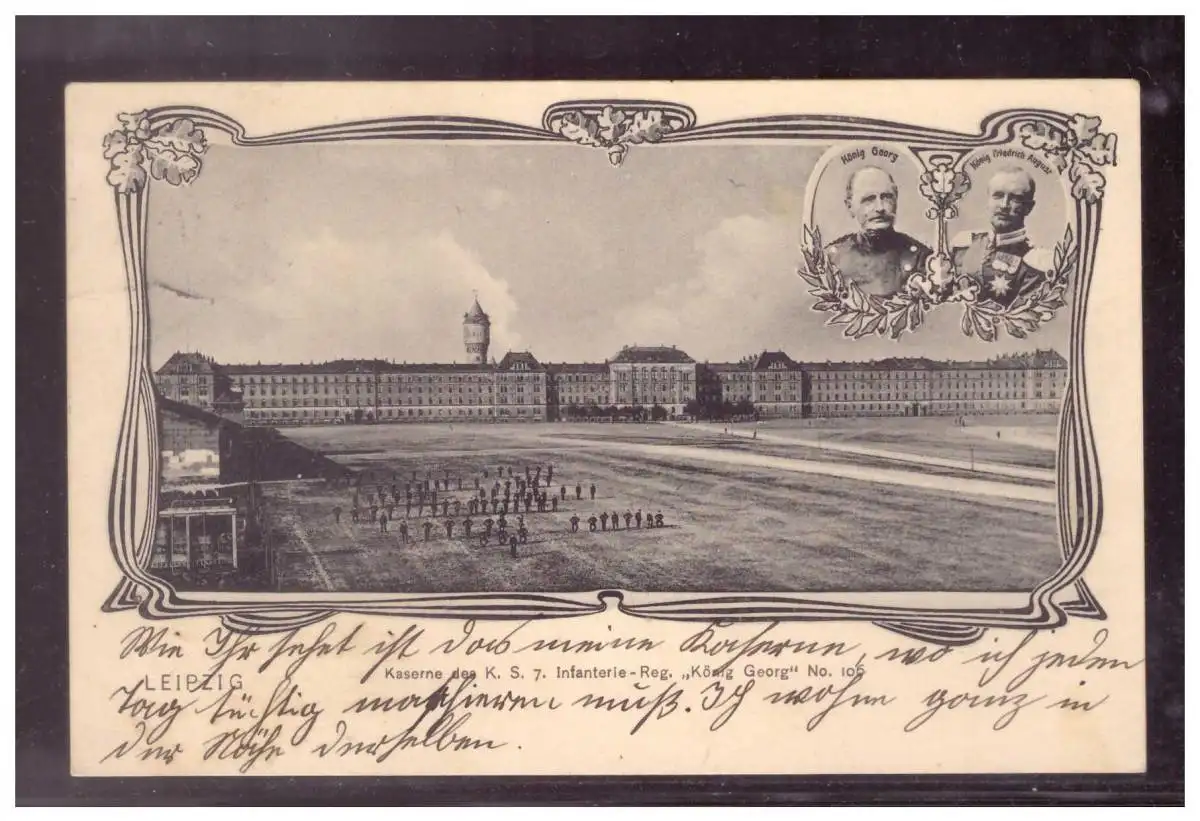 König Georg
König Friedrich August
Wie Ihr sehet ist das meine Kaserne, wo ich jeden
Kaserne des K. S. 7. Infanterie-Reg. „König Georg" No. 106
LEIPZIG
Tag tüchtig marschieren muß. Ich wohne ganz in
der Nähe derselben.